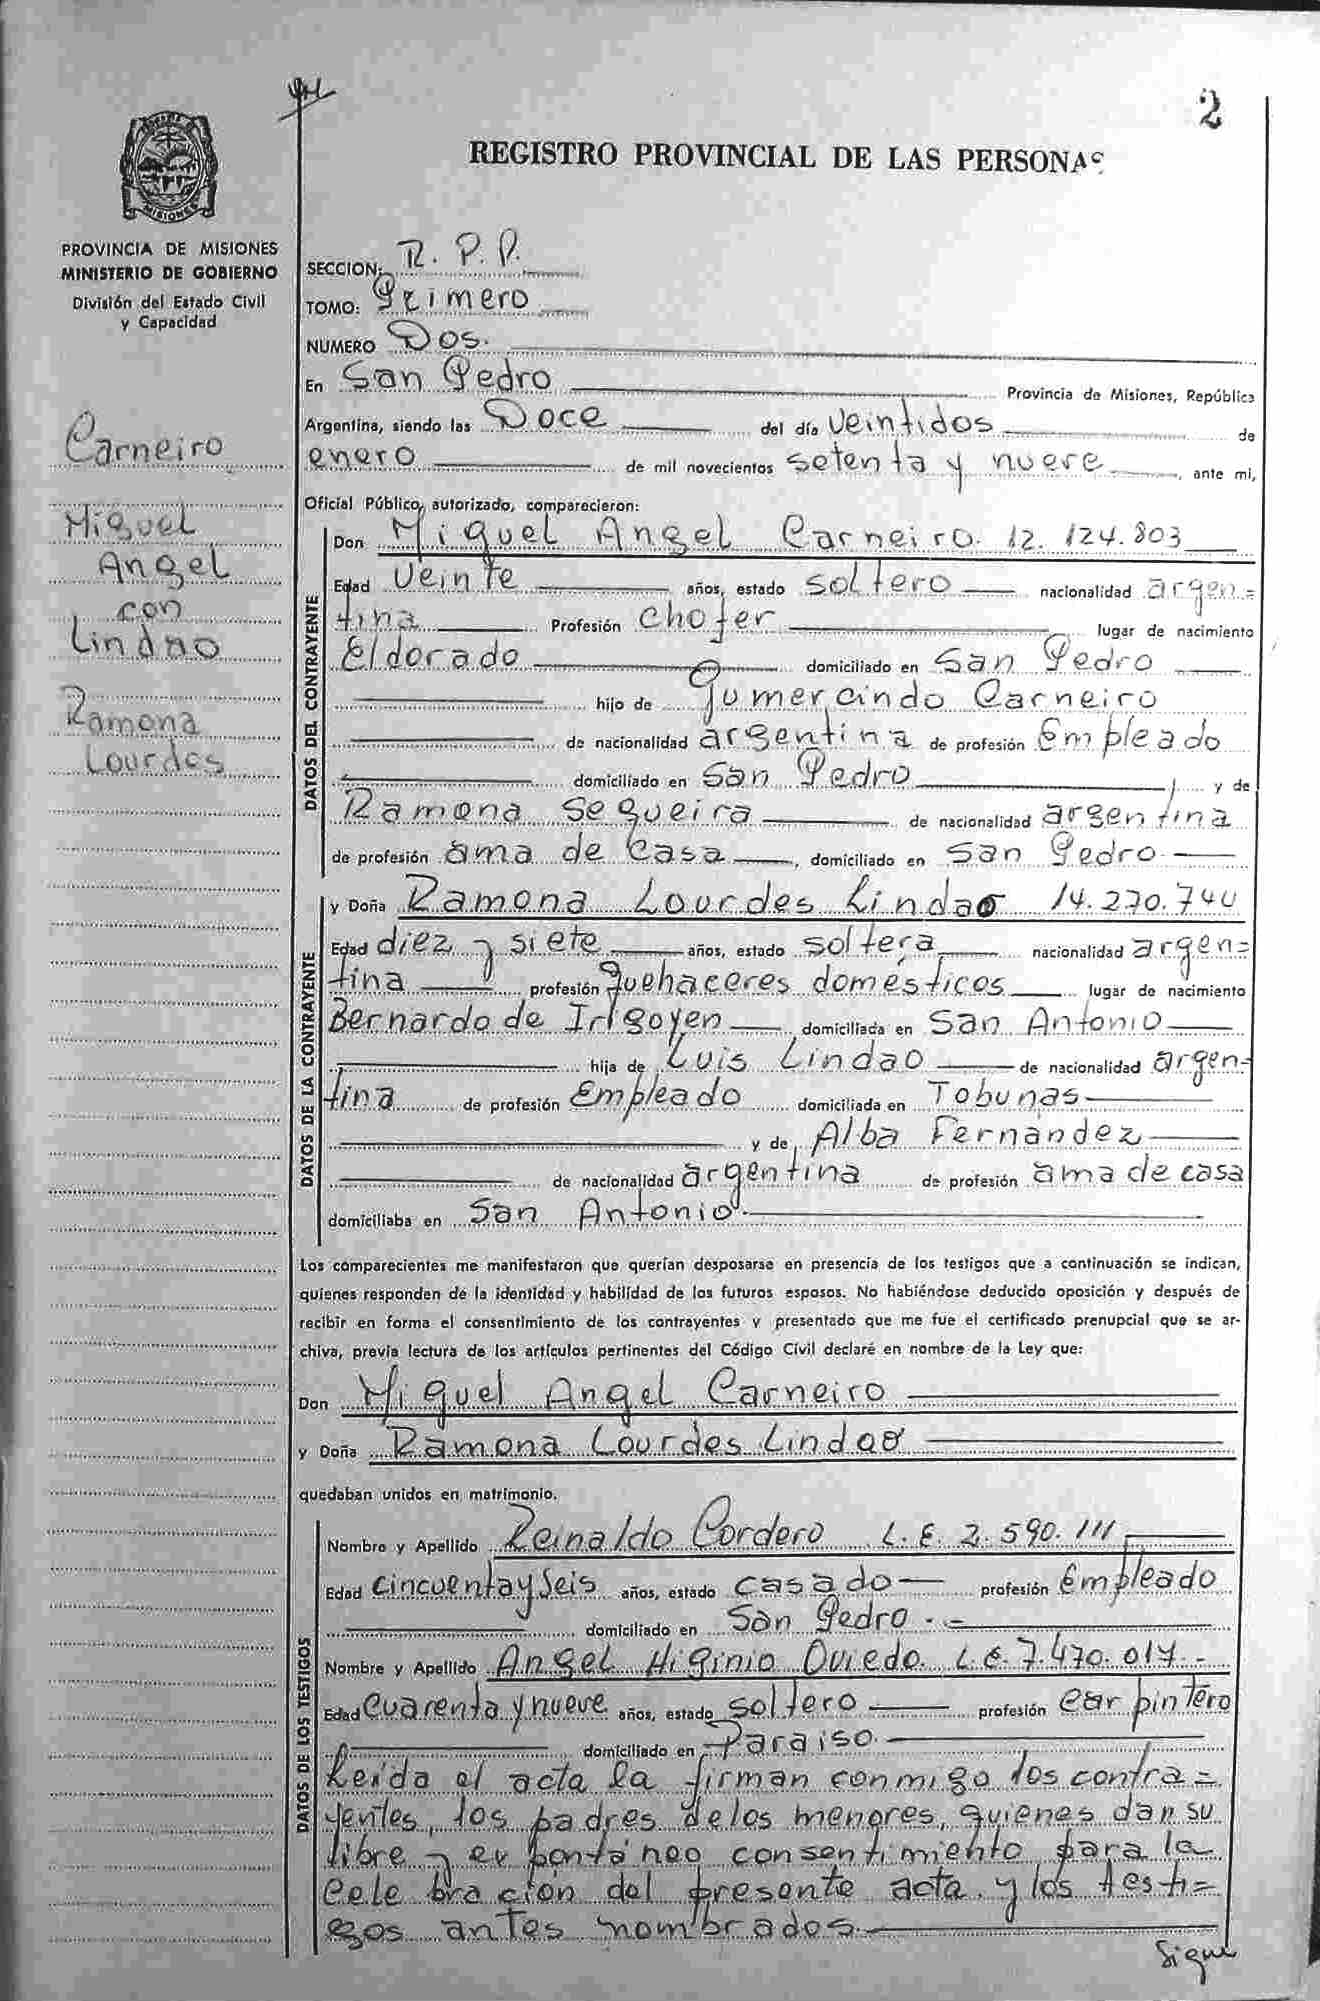 2
REGISTRO PROVINCIAL DE LAS PERSONAS
MISIONES
PROVINCIA DE MISIONES
MINISTERIO DE GOBIERNO
División del Estado Civil
y Capacidad
Carneiro
Miguel
Angel
con
Lindao
Ramona
Lourdes
SECCION: R. P. P.
TOMO: Primero
NUMERO Dos.
En San Pedro Provincia de Misiones, República
Argentina, siendo las Doce del día veintidos de
enero de mil novecientos setenta y nueve, ante mi,
Oficial Público, autorizado, comparecieron:
DATOS DEL CONTRAYENTE
Don Miguel Angel Carneiro. 12.124.803
Edad veinte años, estado soltero nacionalidad argen=
tina Profesión chofer lugar de nacimiento
Eldorado domiciliado en San Pedro
hijo de Gumercindo Carneiro
de nacionalidad argentina de profesión Empleado
domiciliado en San Pedro y de
Ramona Sequeira de nacionalidad argentina
de profesión ama de casa, domiciliado en San Pedro
DATOS DE LA CONTRAYENTE
y Doña Ramona Lourdes Lindao 14.270.740
Edad diez y siete años, estado soltera nacionalidad argen=
tina profesión quehaceres domésticos lugar de nacimiento
Bernardo de Irigoyen domiciliada en San Antonio
hija de Luis Lindao de nacionalidad argen=
tina de profesión Empleado domiciliada en Tobunas
y de Alba Fernández
de nacionalidad argentina de profesión ama de casa
domiciliaba en San Antonio.
Los comparecientes me manifestaron que querían desposarse en presencia de los testigos que a continuación se indican,
quienes responden de la identidad y habilidad de los futuros esposos. No habiéndose deducido oposición y después de
recibir en forma el consentimiento de los contrayentes y presentado que me fue el certificado prenupcial que se ar-
chiva, previa lectura de los artículos pertinentes del Código Civil declaré en nombre de la Ley que:
Don Miguel Angel Carneiro
y Doña Ramona Lourdes Lindao
quedaban unidos en matrimonio.
DATOS DE LOS TESTIGOS
Nombre y Apellido Reinaldo Cordero L.E. 2.590.111
Edad cincuenta y seis años, estado casado profesión Empleado
domiciliado en San Pedro.
Nombre y Apellido Angel Higinio Oviedo. L.E. 7.470.017.-
Edad cuarenta y nueve años, estado soltero profesión carpintero
domiciliado en Paraiso.
Leida el acta la firman conmigo los contra=
yentes, los padres de los menores, quienes dan su
libre y expontáneo consentimiento para la
celebración del presente acta y los testi=
gos antes nombrados
Sigue